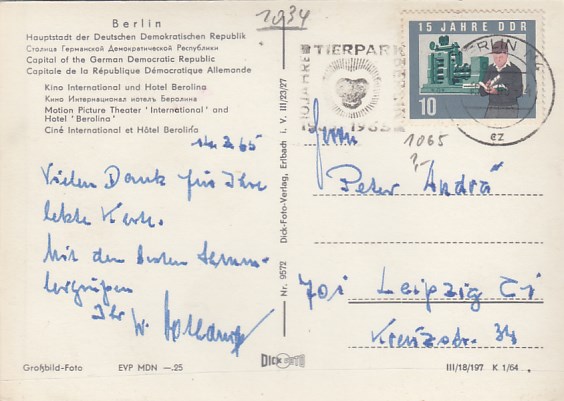 Berlin
Hauptstadt der Deutschen Demokratischen Republik
Столица Германской Демократической Республики
Capital of the German Democratic Republic
Capitale de la République Démocratique Allemande
Kino International und Hotel Berolina
Кино Интернационал мотель Беролина
Motion Picture Theater 'International' and
Hotel 'Berolina'
Ciné International et Hôtel Berolina
1934
15 JAHRE DDR
10
TIERPARK
10 JAHRE
1965
BERLIN
ez
1065
Vielen Dank für Ihre
letzte Karte.
Mit den besten Samm-
lergrüßen
Ihr W.
Herrn
Peter Andrä
701 Leipzig C1
Kreuzstr.
Nr. 9572 Dick-Foto-Verlag, Erlbach i. V. III/23/27
Großbild-Foto EVP MDN —.25
DICK FOTO
III/18/197 K 1/64